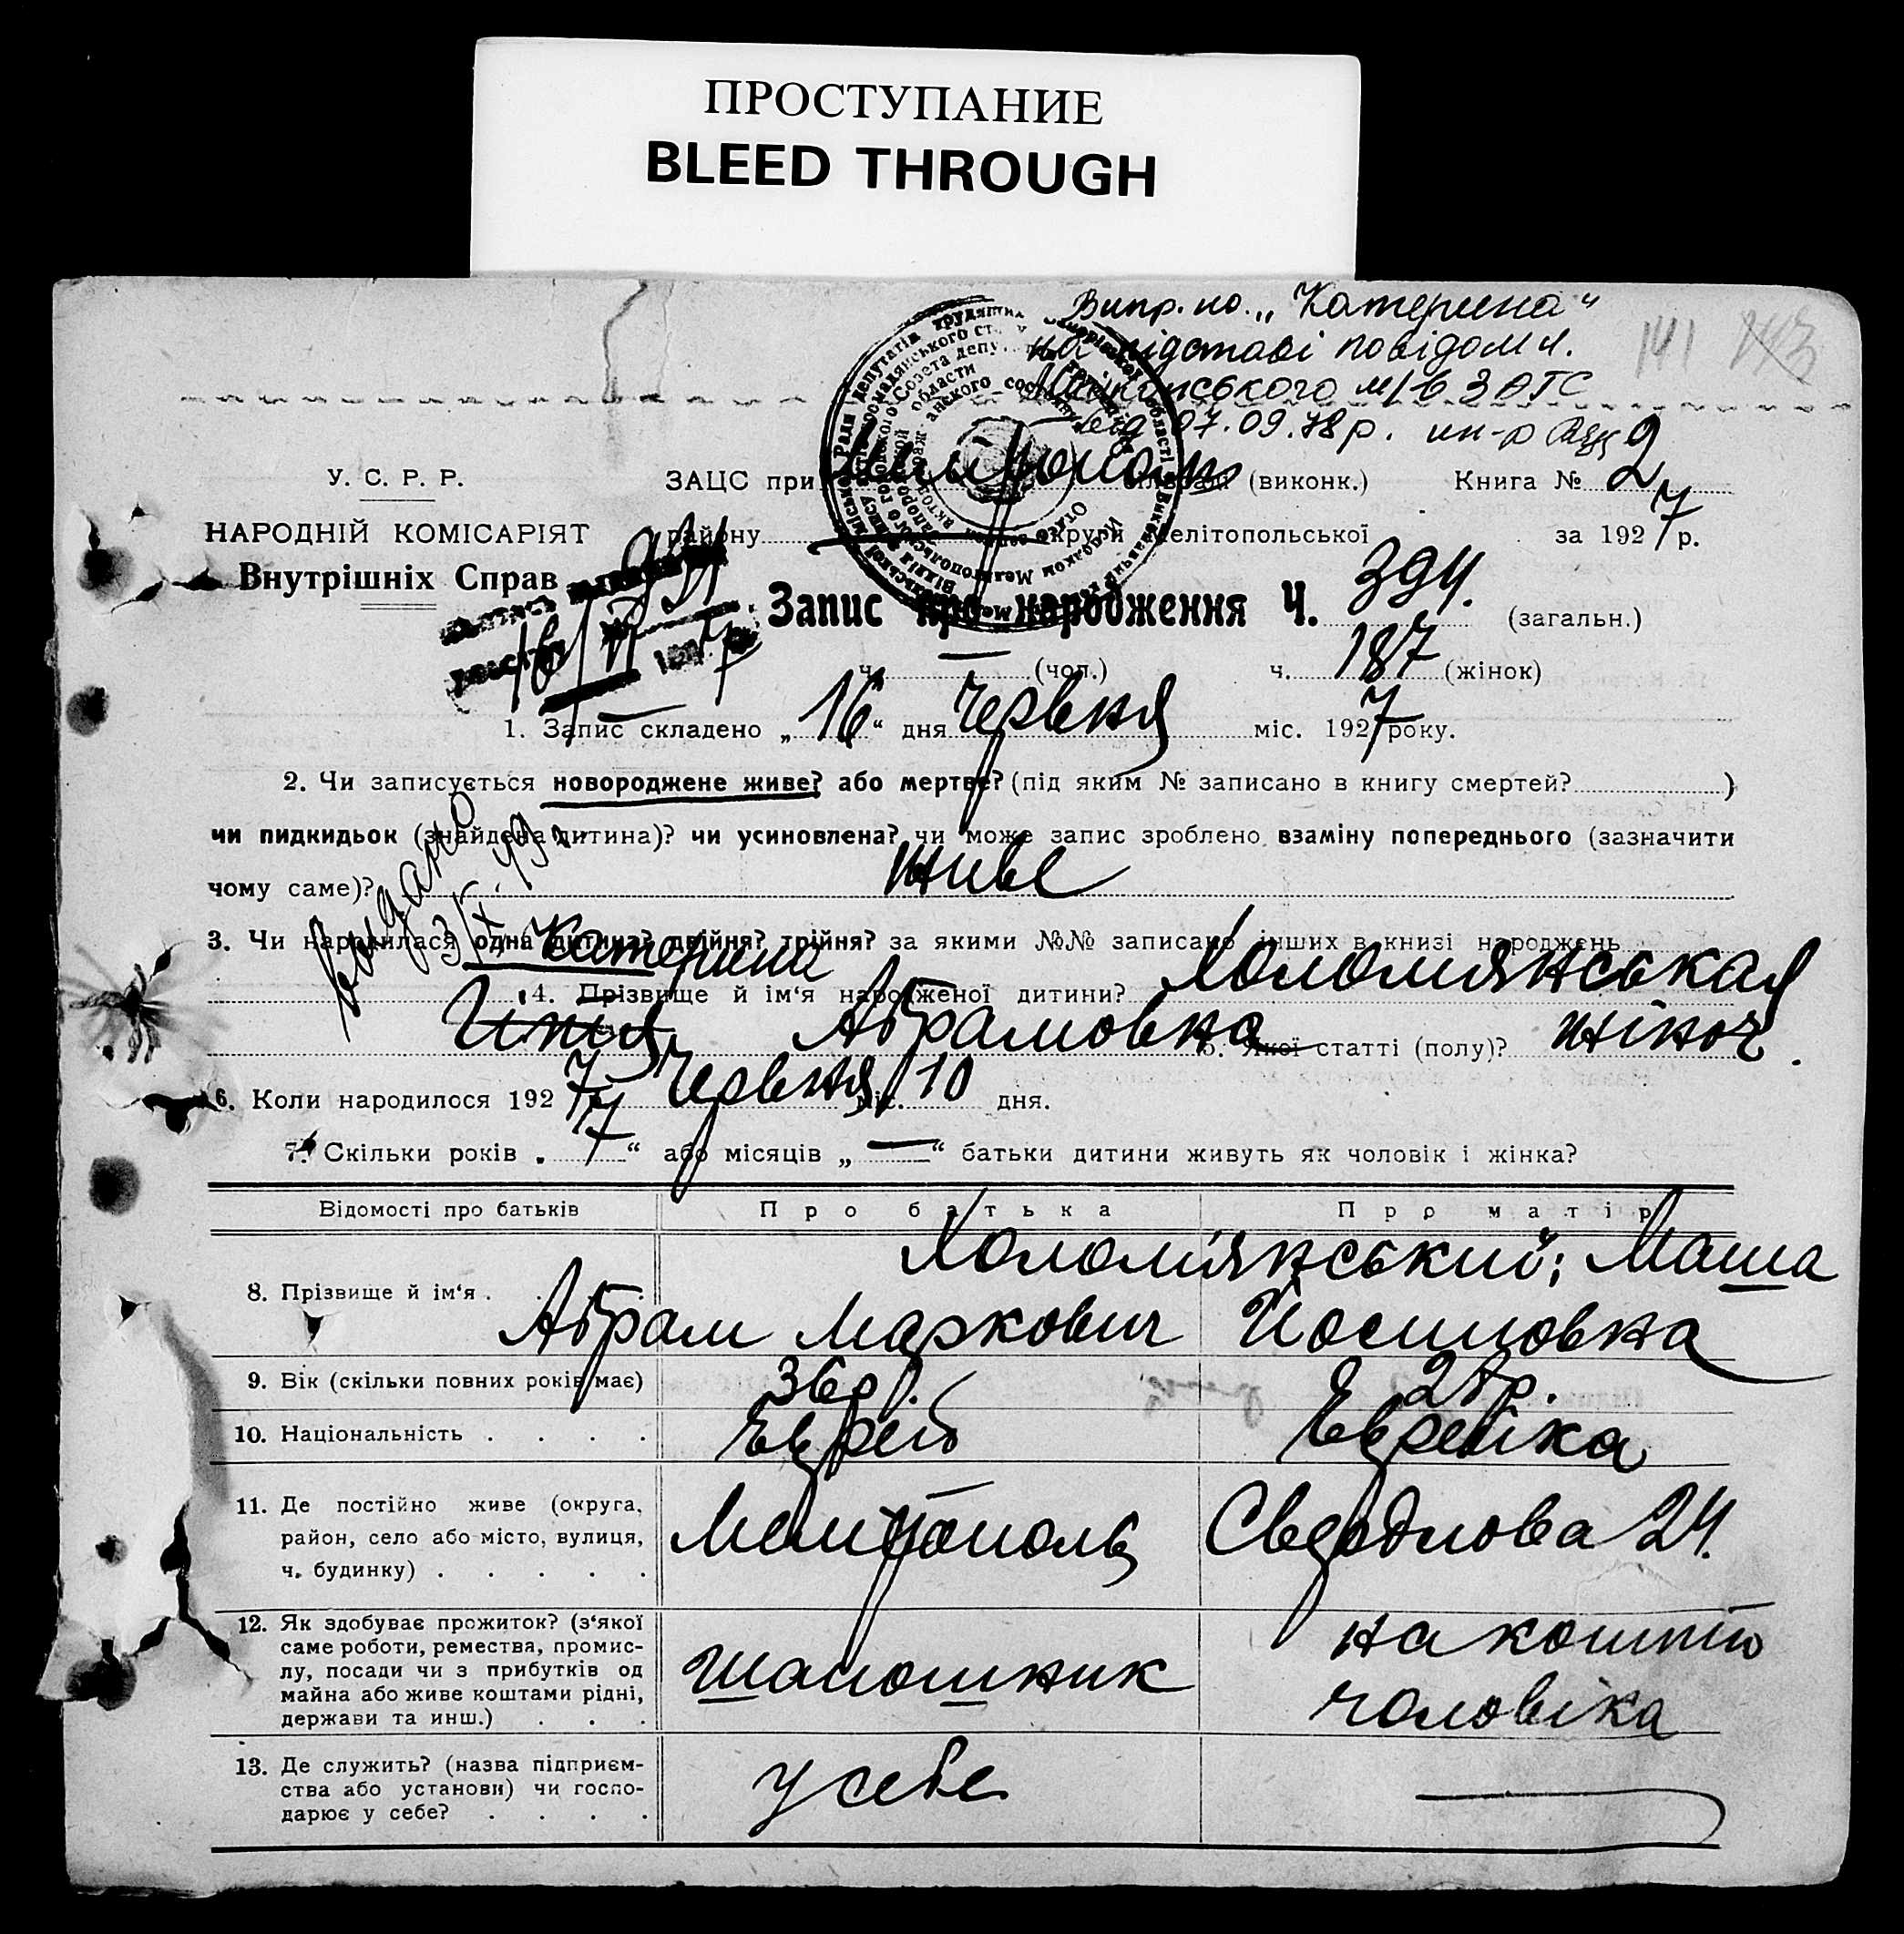 ПРОСТУПАНИЕ
BLEED THROUGH
Випр. по „Катерина“
на підставі повідомл.
м/в ЗАГС
від 07.09.78р.
141 143
У. С. Р. Р. ЗАЦС при (виконк.) Книга № 2
НАРОДНІЙ КОМІСАРІЯТ району округи Мелітопольської за 1927 р.
Внутрішніх Справ
Запис про народження Ч. 394. (загальн.)
ч. — (чол.) ч. 187 (жінок)
1. Запис складено „16“ дня Червня міс. 1927 року.
2. Чи записується новороджене живе? або мертве? (під яким № записано в книгу смертей? )
чи пидкидьок (знайдена дитина)? чи усиновлена? чи може запис зроблено взаміну попереднього (зазначити
чому саме)? живе
3. Чи народилася одна дитина? двійня? трійня? за якими №№ записано інших в книзі народжень
Катерина
4. Прізвище й ім‘я народженої дитини? Холомянськая
Абрамовна 5. Якої статті (полу)? жіноч.
6. Коли народилося 1927 Червня міс. 10 дня.
7. Скільки років „7“ або місяців „—“ батьки дитини живуть як чоловік і жінка?
Відомості про батьків Про батька Про матір
8. Прізвище й ім‘я . Холомянський; Маша
Абрам Маркович Йосиповна
9. Вік (скільки повних років має) 36р.
10. Національність . . . . Еврей Еврейка
11. Де постійно живе (округа,
район, село або місто, вулиця, Мелітополь Свердлова 24.
ч. будинку) . . . . .
12. Як здобуває прожиток? (з‘якої
саме роботи, ремества, промис-
лу, посади чи з прибутків од
майна або живе коштами рідні,
держави та инш.) . . .
шапошник на кошти
чоловіка
13. Де служить? (назва підприєм-
ства або установи) чи госпо-
дарює у себе? . . . .
у себе —